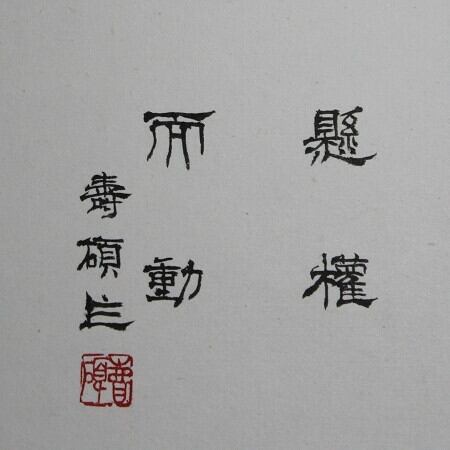 懸權
而動
壽碩